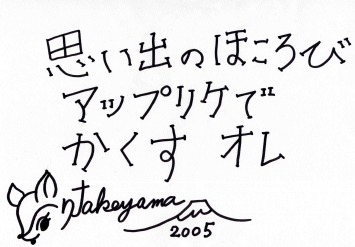 思い出のほころび
アップリケで
かくす オレ
nTakeyama
2005